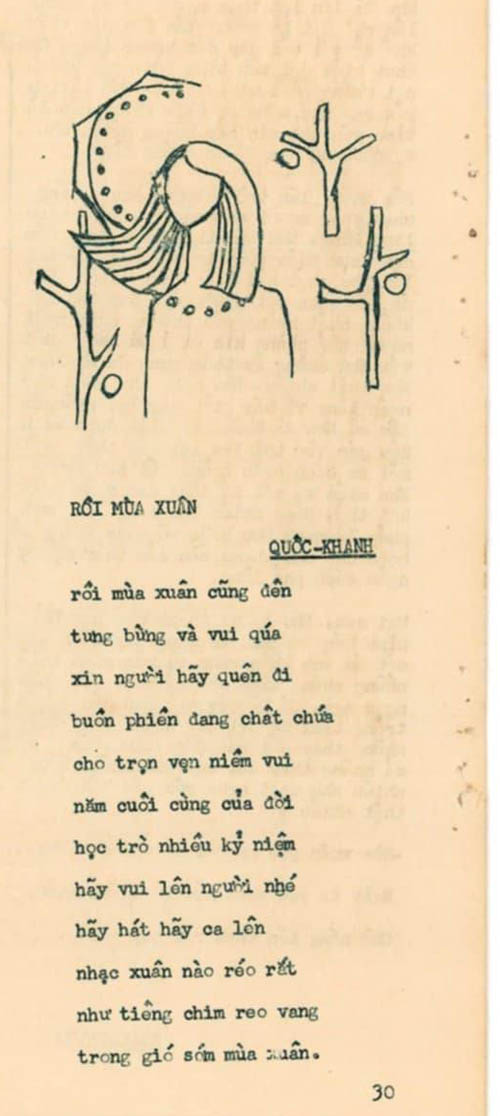 RỒI MÙA XUÂN
QUỐC-KHANH
rồi mùa xuân cũng đến
tưng bừng và vui qúa
xin người hãy quên đi
buồn phiền đang chất chứa
cho trọn vẹn niềm vui
năm cuối cùng của đời
học trò nhiều kỷ niệm
hãy vui lên người nhé
hãy hát hãy ca lên
nhạc xuân nào réo rắt
như tiếng chim reo vang
trong gió sớm mùa xuân.
30